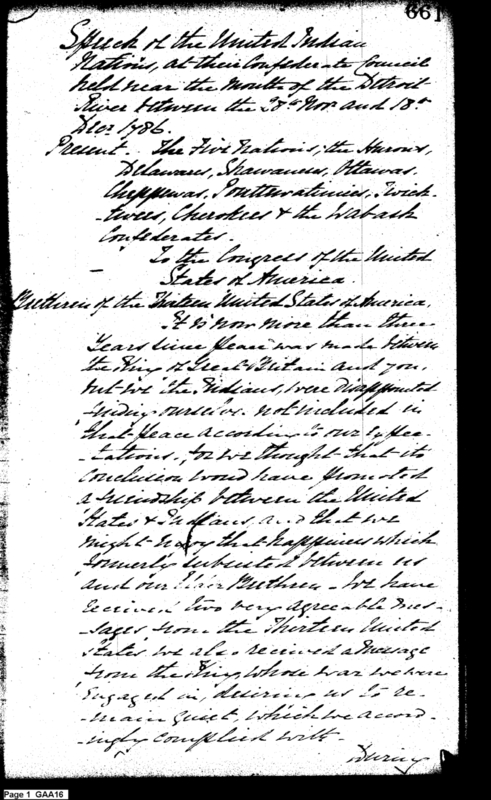 661
Speech of the United Indian
Nations, at their Confederate Council
held near the Mouth of the Detroit
River between the 28th Nov and 18th
Decr 1786.
Present. The Five Nations, the Hurons,
Delawares, Shawanees, Ottawas,
Cheppewas, Pouttawatimies, Twich-
-twees, Cherokees & the Wabash
Confederates.
To the Congress of the United
States of America.
Brethren of the Thirteen United States of America,
It is now more than three
Years since peace was made between
the King of Great Britain and you,
but we the Indians, were disappointed
finding ourselves not included in
that peace according to our Expec-
-tations, for we thought that its
Conclusion would have promoted
a friendship between the United
States & Indians, and that we
might enjoy that happiness which
formerly subsisted between us
and our Elder Brethren - We have
received two very agreeable Mes-
-sages from the Thirteen United
States, we also received a Message
from the King, whose war we were
Engaged in, desiring us to re-
-main quiet, which we accord-
-ingly complied with -
During
Page 1 GAA16